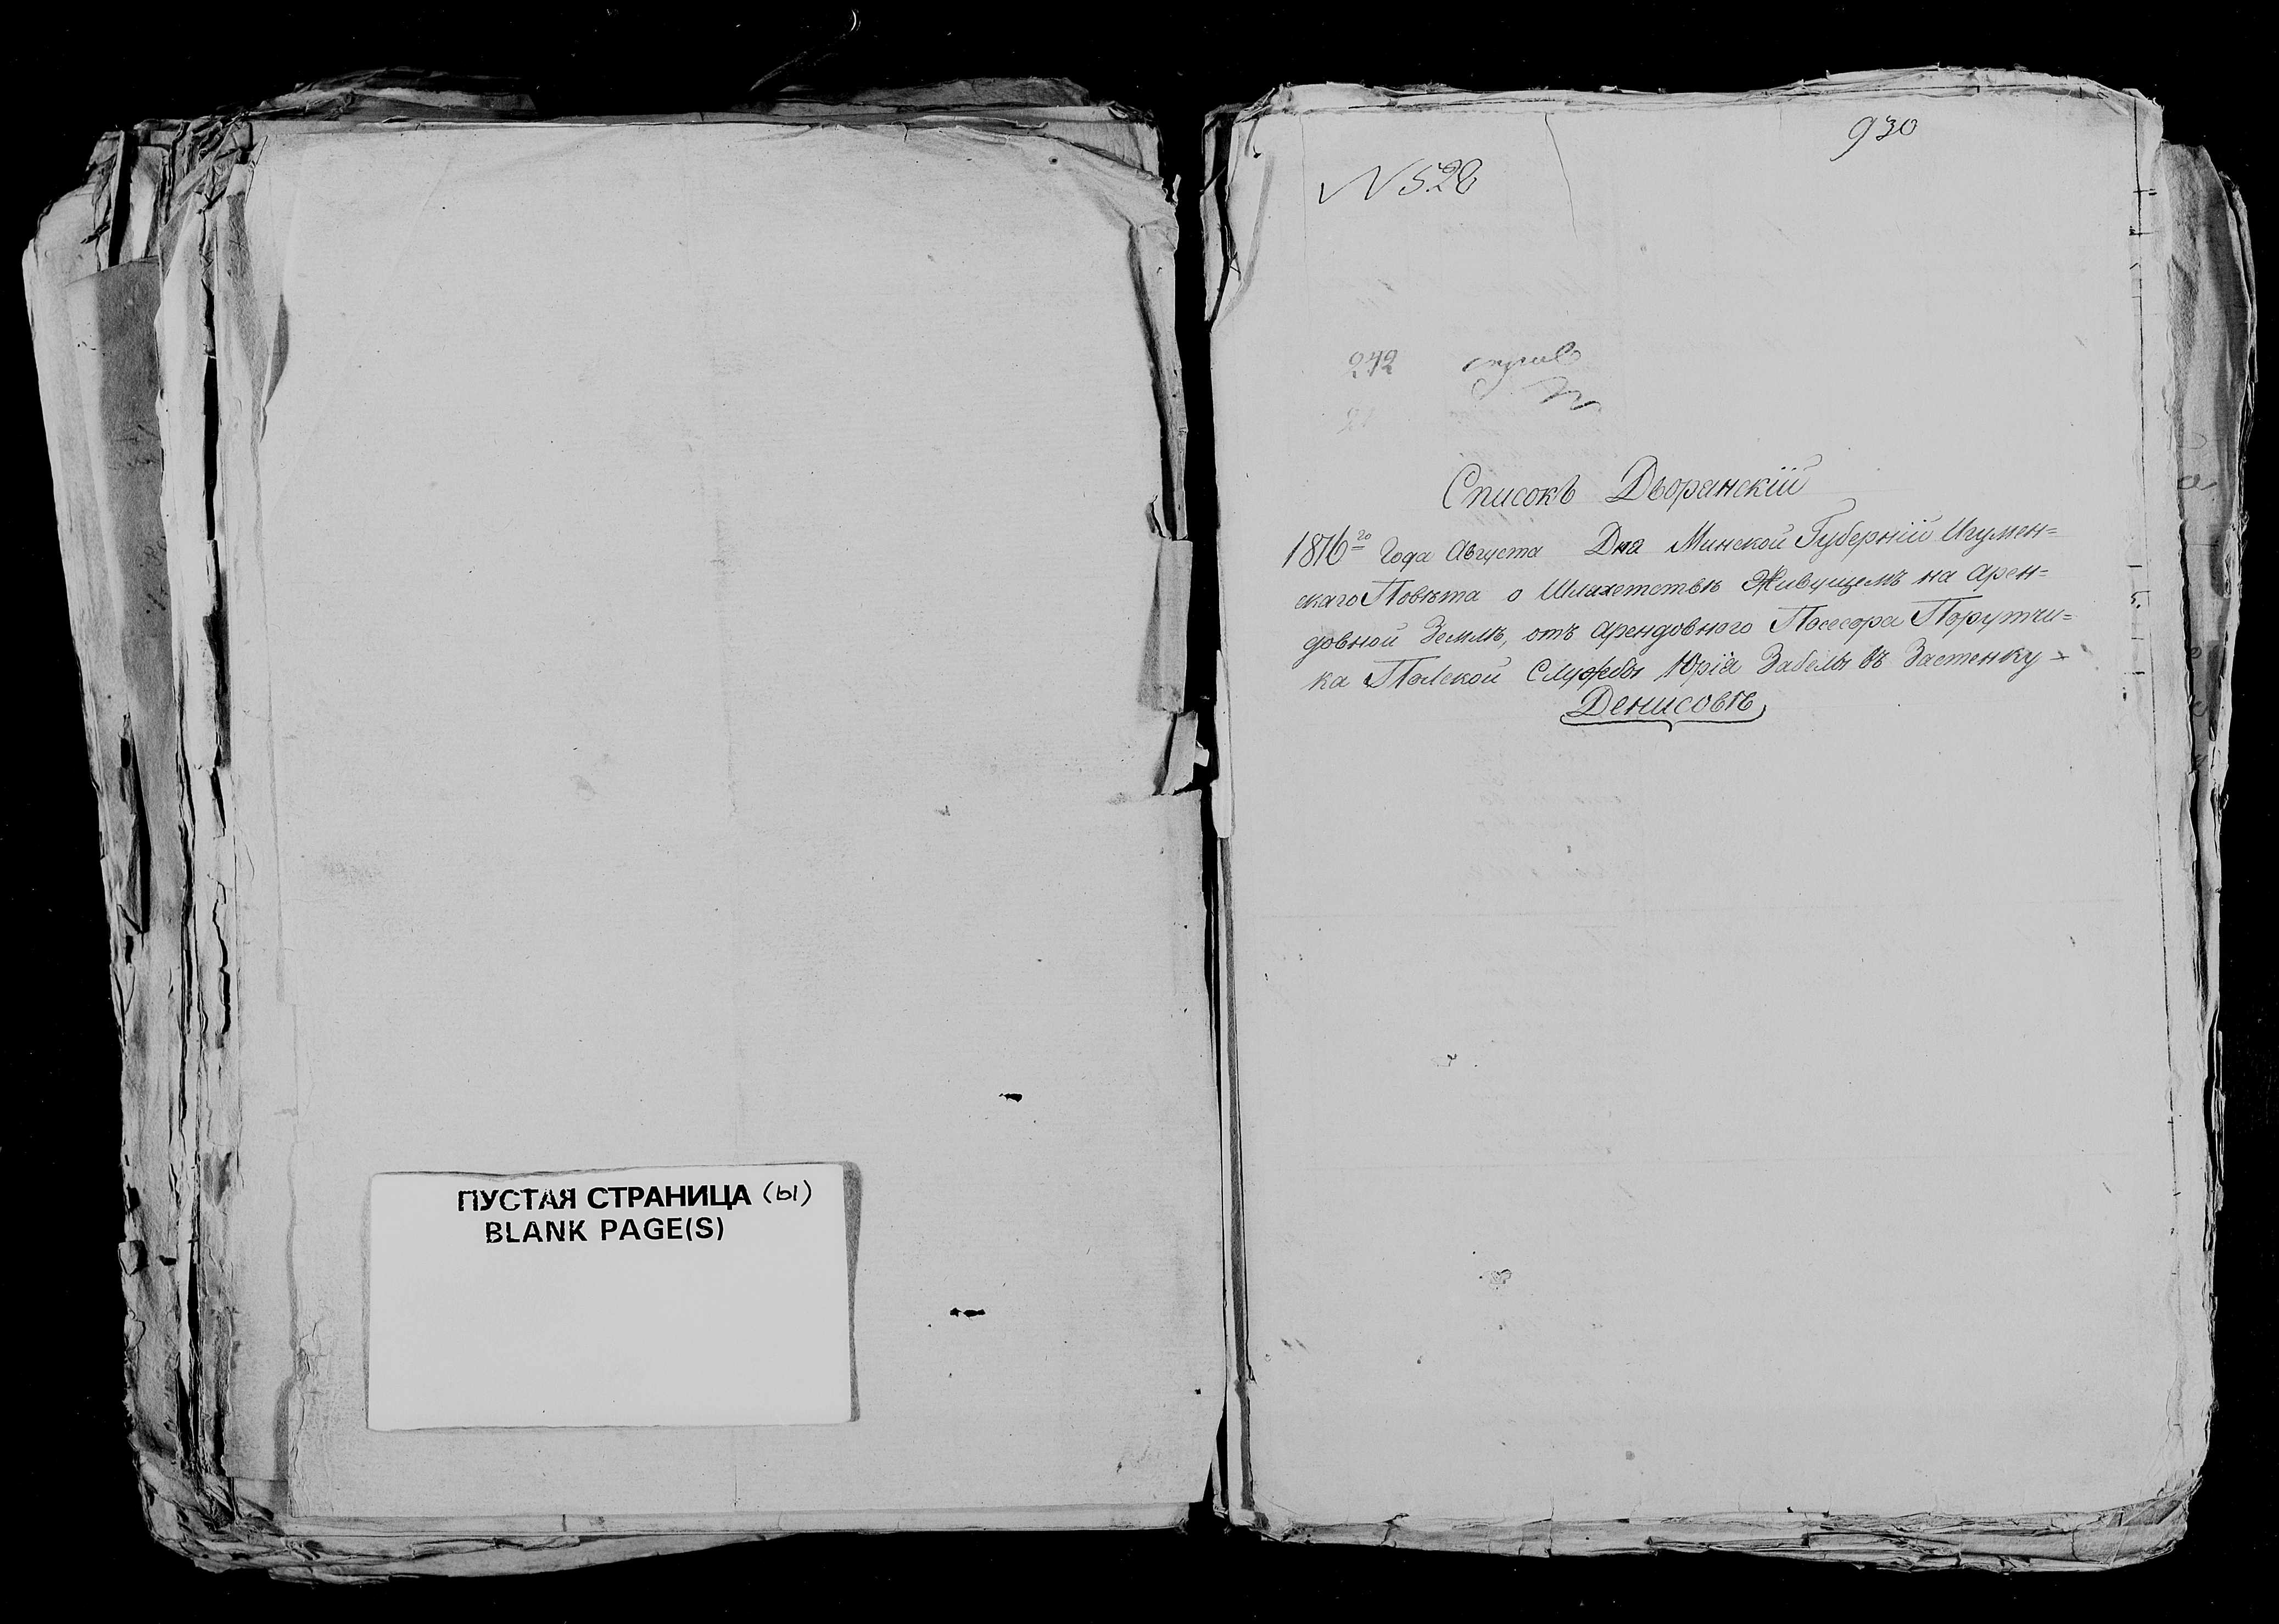 ПУСТАЯ СТРАНИЦА (ы)
BLANK PAGE(S)
930
N 528
242
Списокъ Дворянскій
1816го Года Августа Дня Минской Губерніи Игумен=
скаго Повѣта о Шляхетствѣ Живущемъ на арен=
довной Землѣ, отъ арендовного Посесора Порутчи=
ка Полской Службы Юрія Забелы въ Застенку
Денисовѣ